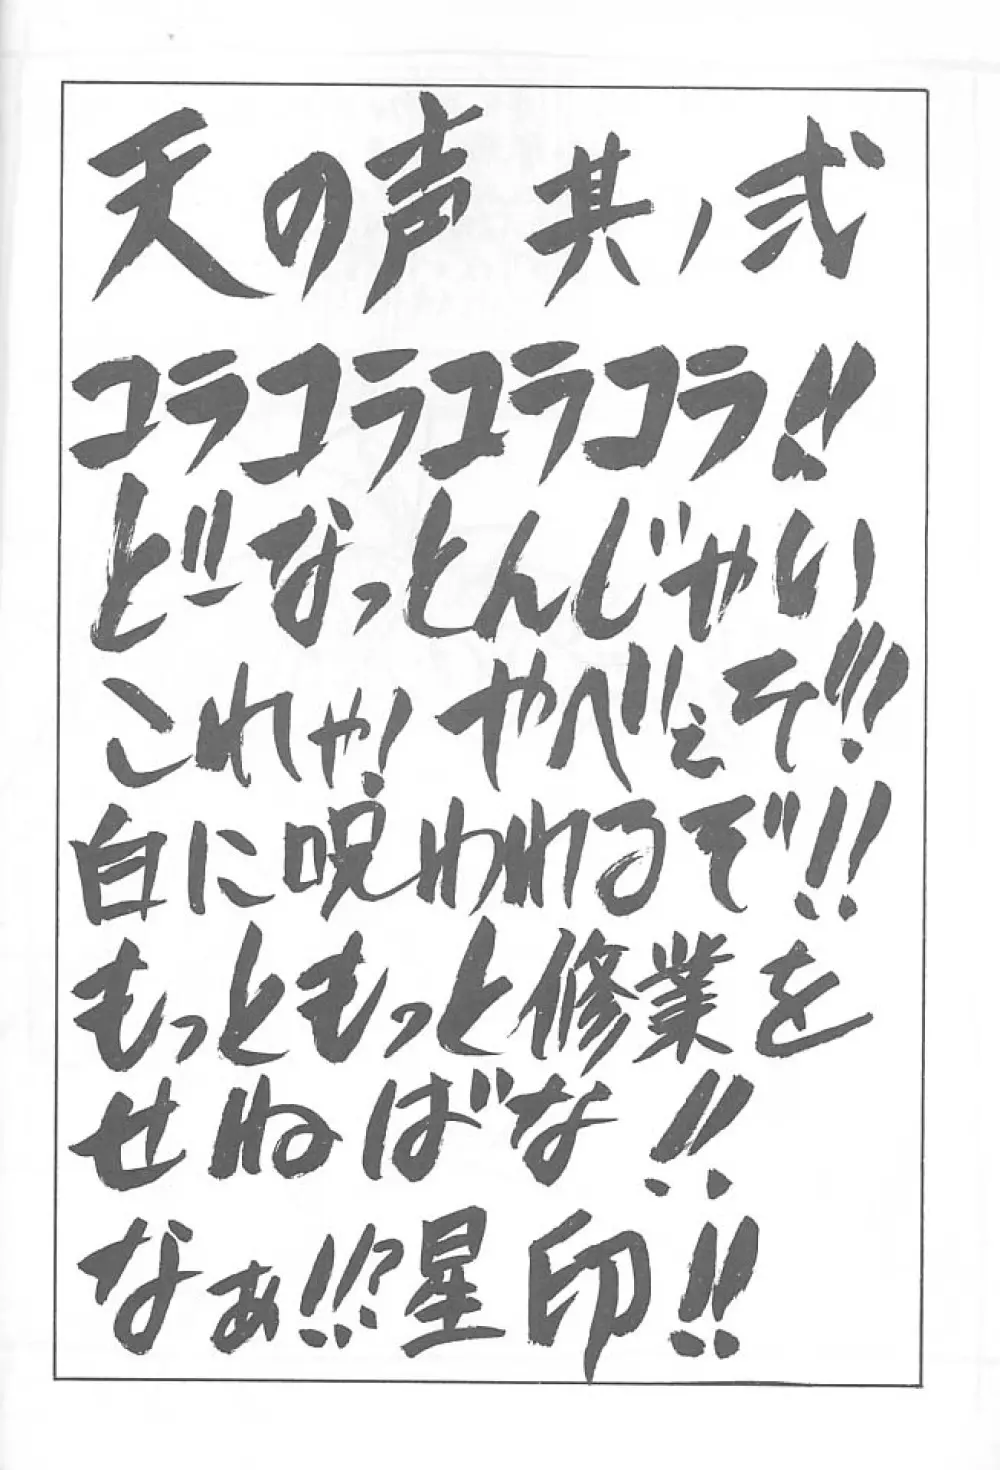 天の声 其ノ弐
コラコラコラコラ!!
ど〝なっとんじゃい
これゃ! やべぇぞ!!!
白に呪われるぞ!!
もっともっと修業を
せねばな!!
なぁ!!?星印!!